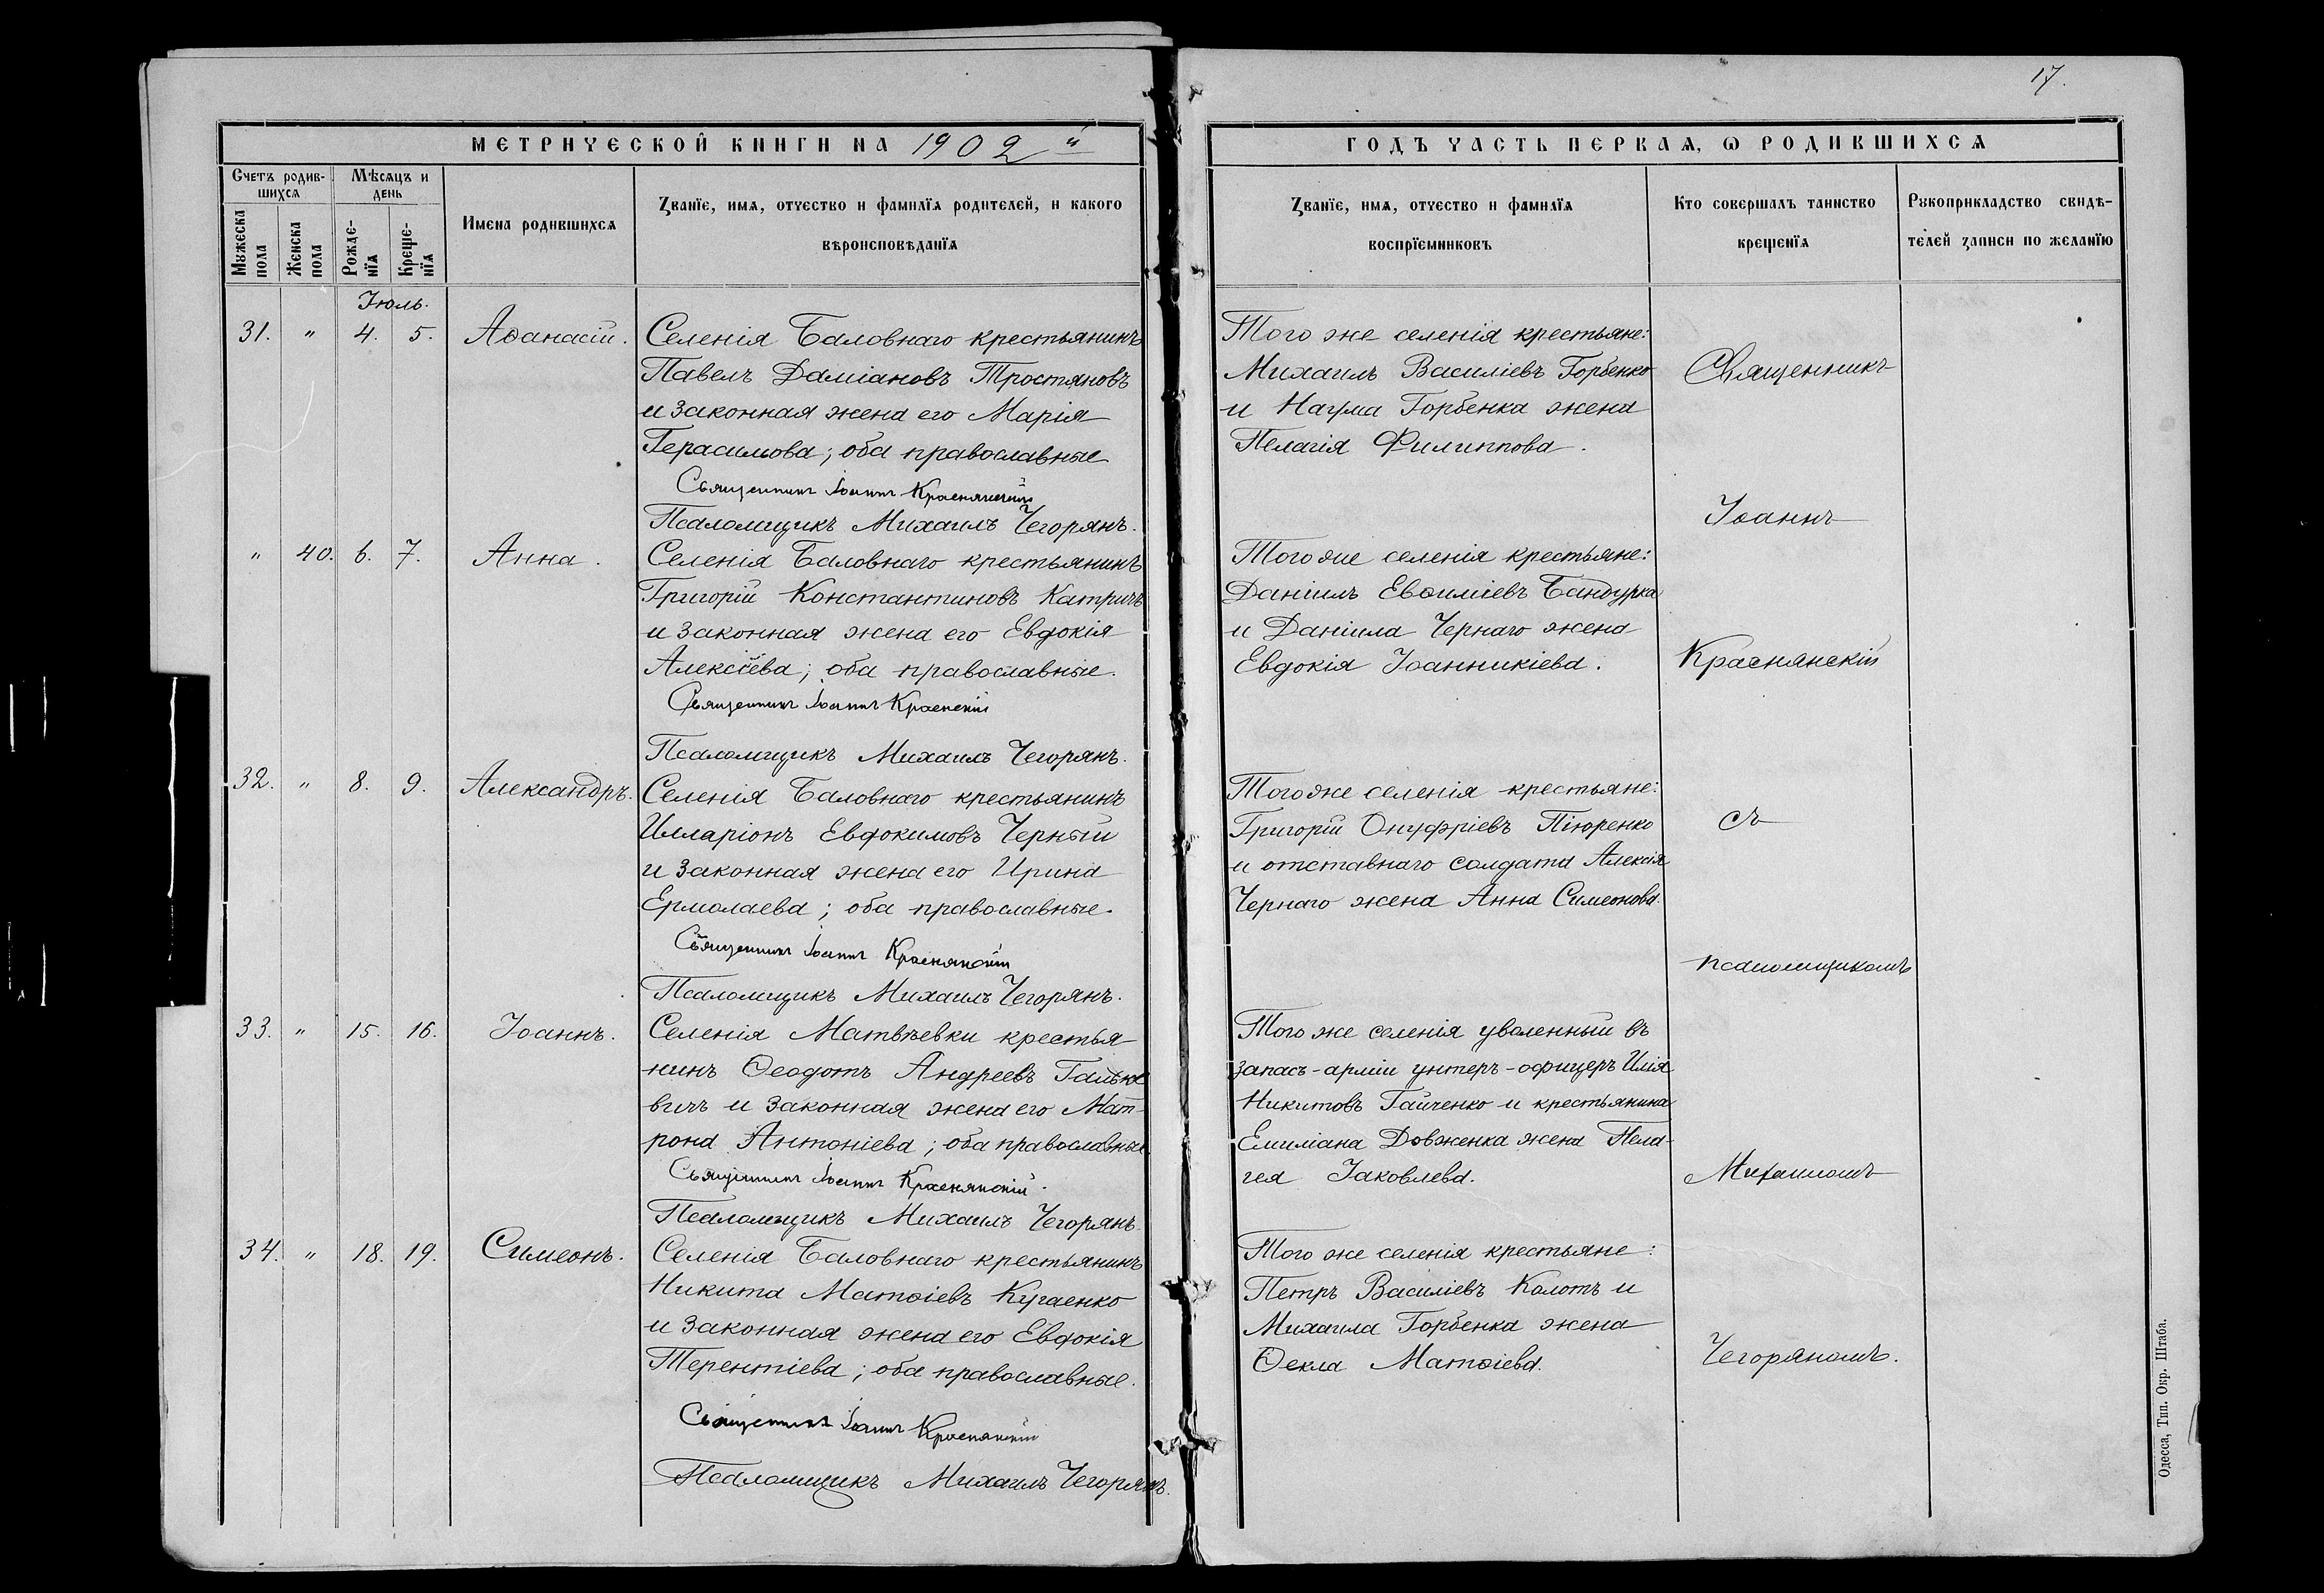 17.
МЕТРИЧЕСКОЙ КНИГИ НА 1902 й
ГОДЪ ЧАСТЬ ПЕРВАѦ, Ѡ РОДИВШИХСѦ
Счетъ родив-
шихсѧ
Мѣсѧцъ и
день
Мꙋжеска
пола
Женска
пола
Рожде-
нїѧ
Креще-
нїѧ
Имена родившихсѧ
Званїе, имѧ, отчество и фамилїѧ родителей, и какого
вѣроисповѣданїѧ
Званїе, имѧ, отчество и фамилїѧ
воспрїемниковъ
Кто совершалъ таинство
крещенїѧ
Рꙋкоприкладство свидѣ-
телей записи по желанїю
Іюль.
31. " 4. 5. Аѳанасій.
Селенія Баловнаго крестьянинъ
Павелъ Даміановъ Тростяновъ
и законная жена его Марія
Герасимова; оба православные
Священникъ Іоаннъ Краснянскій
Псаломщикъ Михаилъ Чегорянъ.
Того же селенія крестьяне:
Михаилъ Василіевъ Горбенко
и Наума Горбенка жена
Пелагія Филиппова.
" 40. 6. 7. Анна.
Селенія Баловнаго крестьянинъ
Григорій Константиновъ Катричъ
и законная жена его Евдокія
Алексіева; оба православные.
Священникъ Іоаннъ Краснскій
Псаломщикъ Михаилъ Чегорянъ.
Того же селенія крестьяне:
Даніилъ Евѳиміевъ Бандурка
и Даніила Чернаго жена
Евдокія Іоанникіева.
32. " 8. 9. Александръ.
Селенія Баловнаго крестьянинъ
Илларіонъ Евдокимовъ Черный
и законная жена его Ирина
Ермолаева; оба православные.
Священникъ Іоаннъ Краснянскій
Псаломщикъ Михаилъ Чегорянъ.
Того же селенія крестьяне:
Григорій Онуфріевъ Піюренко
и отставнаго солдата Алексія
Чернаго жена Анна Симеонова.
33. " 15. 16. Іоаннъ.
Селенія Матвѣевки крестья-
нинъ Ѳеодотъ Андреевъ
вичъ и законная жена его Мат-
рона Антоніева; оба православные
Священникъ Іоаннъ Краснянскій.
Псаломщикъ Михаилъ Чегорянъ.
Того же селенія уволенный въ
запасъ-арміи унтеръ-офицеръ Илія
Никитовъ Гайченко и крестьянина
Емиліана Довженка жена Пела-
гея Іаковлева.
34. " 18. 19. Симеонъ.
Селенія Баловнаго крестьянинъ
Никита Матѳіевъ Кугаенко
и законная жена его Евдокія
Терентіева; оба православные.
Священникъ Іоаннъ Краснянскій
Псаломщикъ Михаилъ Чегорянъ.
Того же селенія крестьяне:
Петръ Василіевъ Колотъ и
Михаила Горбенка жена
Ѳекла Матѳіева.
Священникъ
Іоаннъ
Краснянскій
съ
псаломщикомъ
Михаиломъ
Чегоряномъ.
Одесса, Тип. Окр. Штаба.